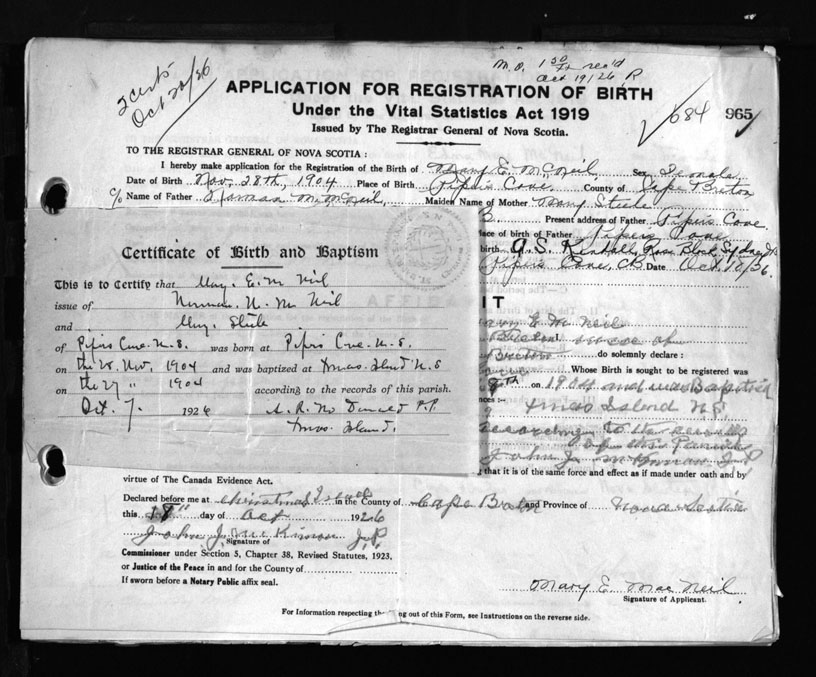 2 certs
Oct 20/26
M.O. 1 50 rec'd
Oct 19/26 R
APPLICATION FOR REGISTRATION OF BIRTH
Under the Vital Statistics Act 1919
Issued by The Registrar General of Nova Scotia.
684 965
TO THE REGISTRAR GENERAL OF NOVA SCOTIA:
I hereby make application for the Registration of the Birth of Mary E. McNeil Sex Female
Date of Birth Nov. 28th, 1904 Place of Birth Pipers Cove County of Cape Breton
c/o Name of Father Norman McNeil Maiden Name of Mother Mary Steele
B. Present address of Father Pipers Cove
lace of birth of Father Pipers Cove
birth A.S. Kendall, Ross Block Sydney
Pipers Cove, CB Date Oct 18/26.
Certificate of Birth and Baptism
This is to Certify that Mary. E. Mc Neil
issue of Norman. N. Mc Neil
and Mary. Steele
of Pipers Cove. N.S. was born at Pipers Cove. N.S.
on the 28. Nov. 1904 and was baptized at Xmas Island N.S
on the 29 " 1904 according to the records of this parish.
Oct. 7. 1926 P.P.
Xmas Island.
IT
Mary E Mc Neil
Breton
Breton do solemnly declare:
Whose Birth is sought to be registered was
8th on 1904 and was Baptized
nces:— Xmas Island N.S.
according to the records
of the Parish
John J. McKinnon J.P.
that it is of the same force and effect as if made under oath and by
virtue of The Canada Evidence Act.
Declared before me at Christmas Island in the County of Cape Breton and Province of Nova Scotia
this 18th day of Oct 1926
John J. McKinnon J.P.
Signature of
Commissioner under Section 5, Chapter 38, Revised Statutes, 1923,
or Justice of the Peace in and for the County of
If sworn before a Notary Public affix seal.
Mary E. MacNeil
Signature of Applicant.
For Information respecting the ng out of this Form, see Instructions on the reverse side.